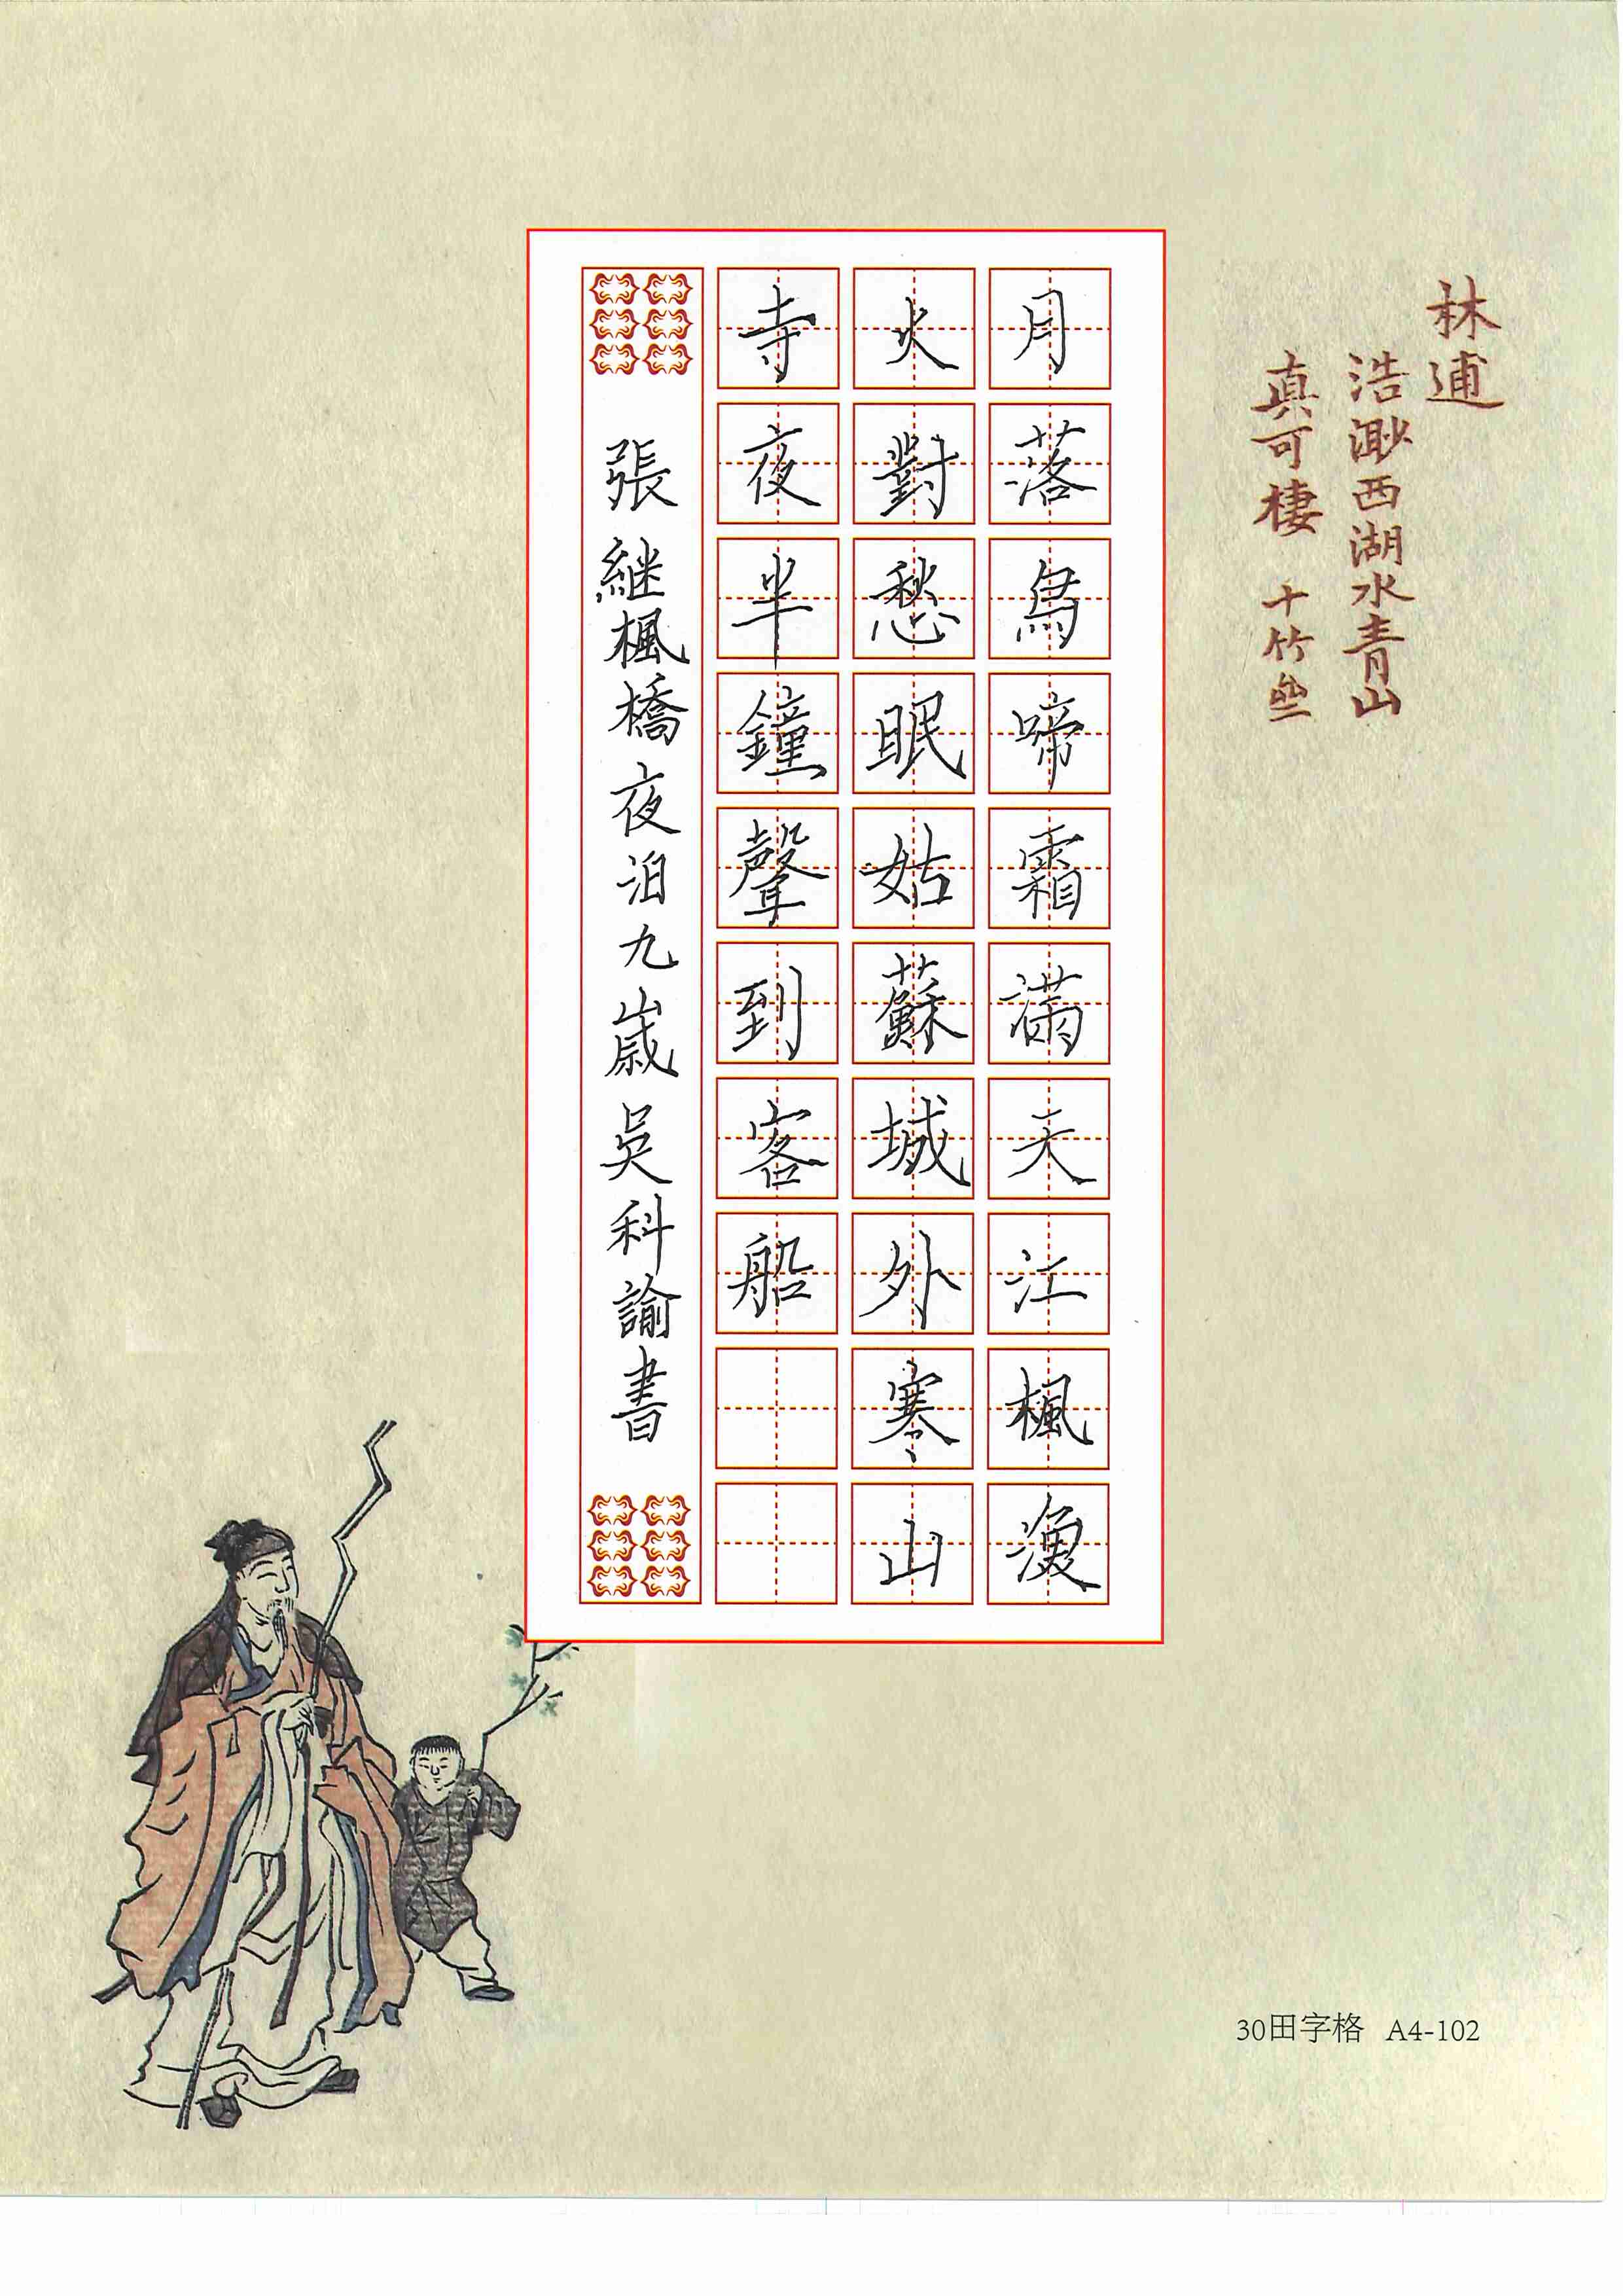 林逋
浩渺西湖水青山
真可棲 十竹齋
月落烏啼霜滿天江楓漁
火對愁眠姑蘇城外寒山
寺夜半鐘聲到客船
張継楓橋夜泊九歲吳科諭書
30田字格 A4-102